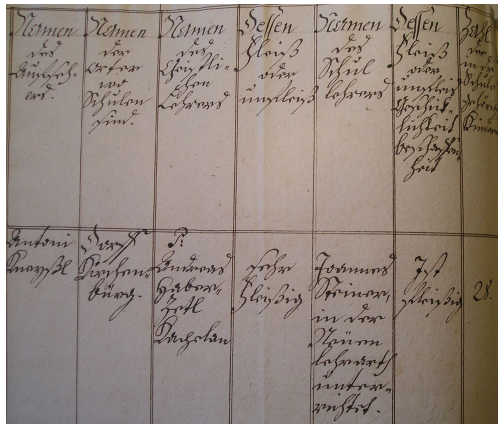 Namen
des
Aufseh-
ers.
Namen
der
Örter
wo
Schulen
sind.
Namen
des
Geistli-
chen
Lehrers
Dessen
Fleiß
oder
unfleiß
Namen
des
Schul
lehrers
Dessen
Fleiß
oder
unfleis
Geschick-
lichkeit
beschaffen-
heit
Zahl
der
in die
Schule
gehen
Kinder
Antoni
Dorf
Kirchen-
bürg.
P:
Andreas
Haber-
zetl
Kachelan
sehr
fleißig
Joannes
Steiner,
in der
Neuen
lehrarth
unter-
richtet.
Ist
fleißig
28.